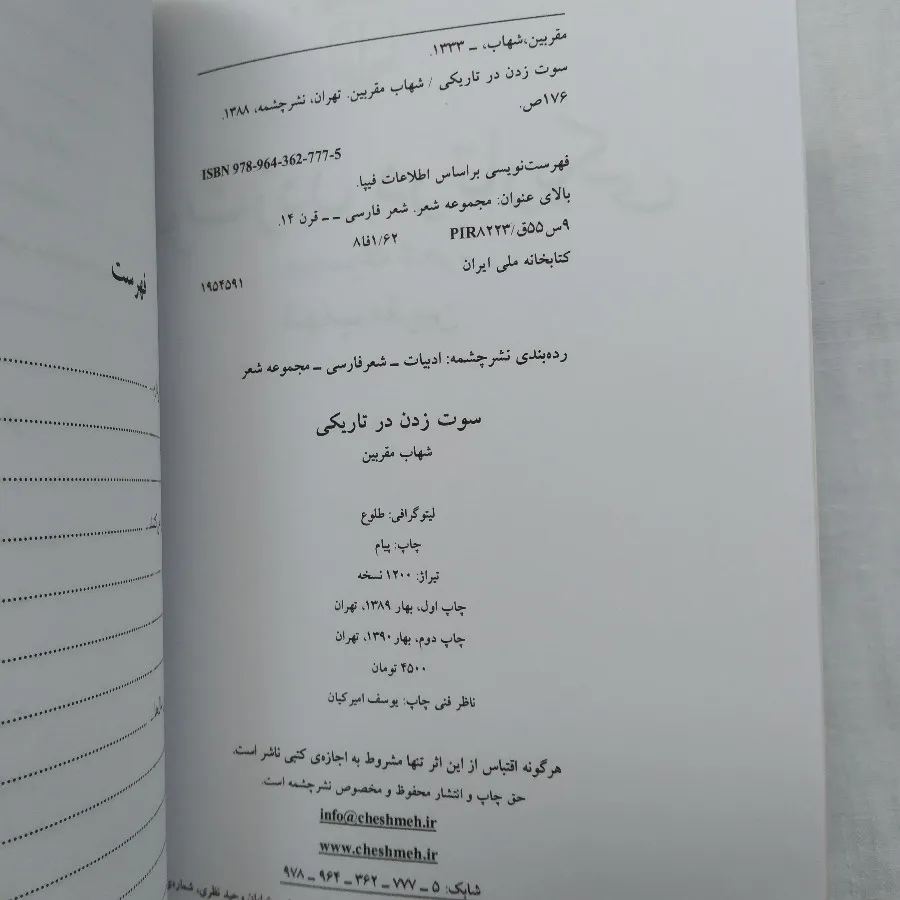 مقربین،شهاب، ــ ۱۳۳۳.
سوت زدن در تاریکی / شهاب مقربین. تهران، نشرچشمه، ۱۳۸۸.
۱۷۶ص.
ISBN 978-964-362-777-5
فهرست‌نویسی براساس اطلاعات فیپا.
بالای عنوان: مجموعه شعر. شعر فارسی ــ ــ قرن ۱۴.
۹س۵۵ق/PIR۸۲۲۳ ۸فا۱/۶۲
کتابخانه ملی ایران ۱۹۵۴۵۹۱
رده‌بندی نشرچشمه: ادبیات ــ شعرفارسی ــ مجموعه شعر
سوت زدن در تاریکی
شهاب مقربین
لیتوگرافی: طلوع
چاپ: پیام
تیراژ: ۱۲۰۰ نسخه
چاپ اول، بهار ۱۳۸۹، تهران
چاپ دوم، بهار ۱۳۹۰، تهران
۴۵۰۰ تومان
ناظر فنی چاپ: یوسف امیرکیان
هرگونه اقتباس از این اثر تنها مشروط به اجازه‌ی کتبی ناشر است.
حق چاپ و انتشار محفوظ و مخصوص نشرچشمه است.
info@cheshmeh.ir
www.cheshmeh.ir
شابک: ۵ ــ ۷۷۷ ــ ۳۶۲ ــ ۹۶۴ ــ ۹۷۸
وحید نظری، شماره‌ی
فهرست